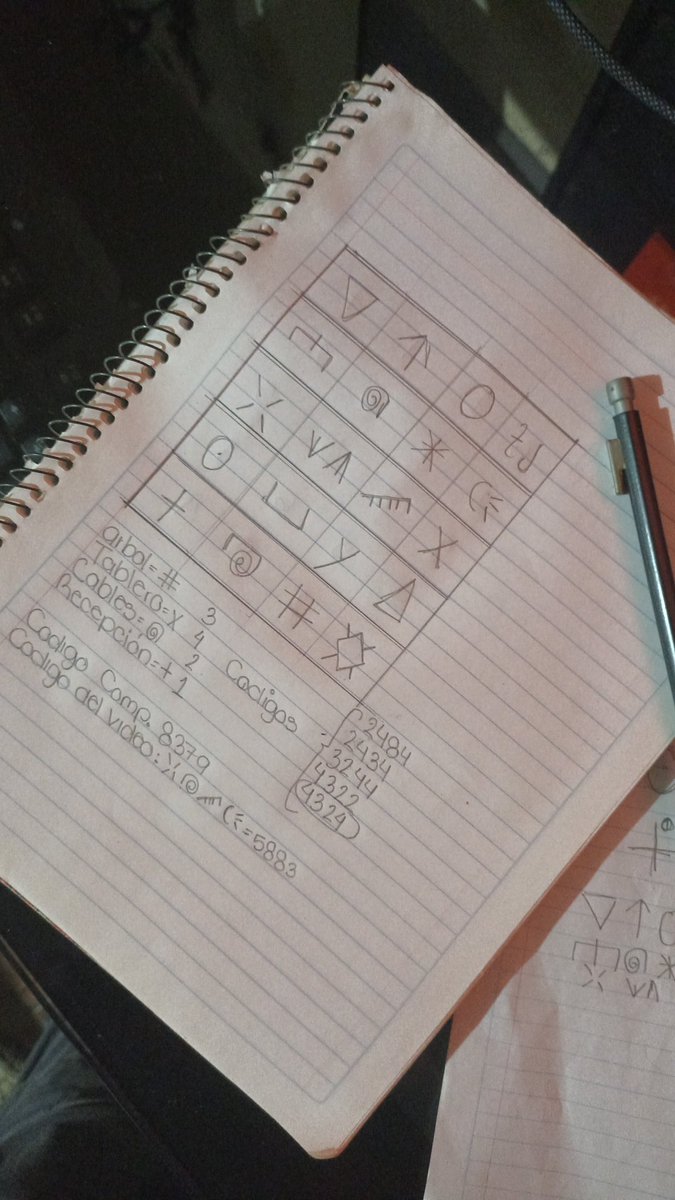 arbol = # 3
Tablero = X 4
Cables = @ 2
Recepción = + 1
Codigos
2484
2434
3244
4322
4324
Codigo Comp. 8379
Codigo del video: = 5883